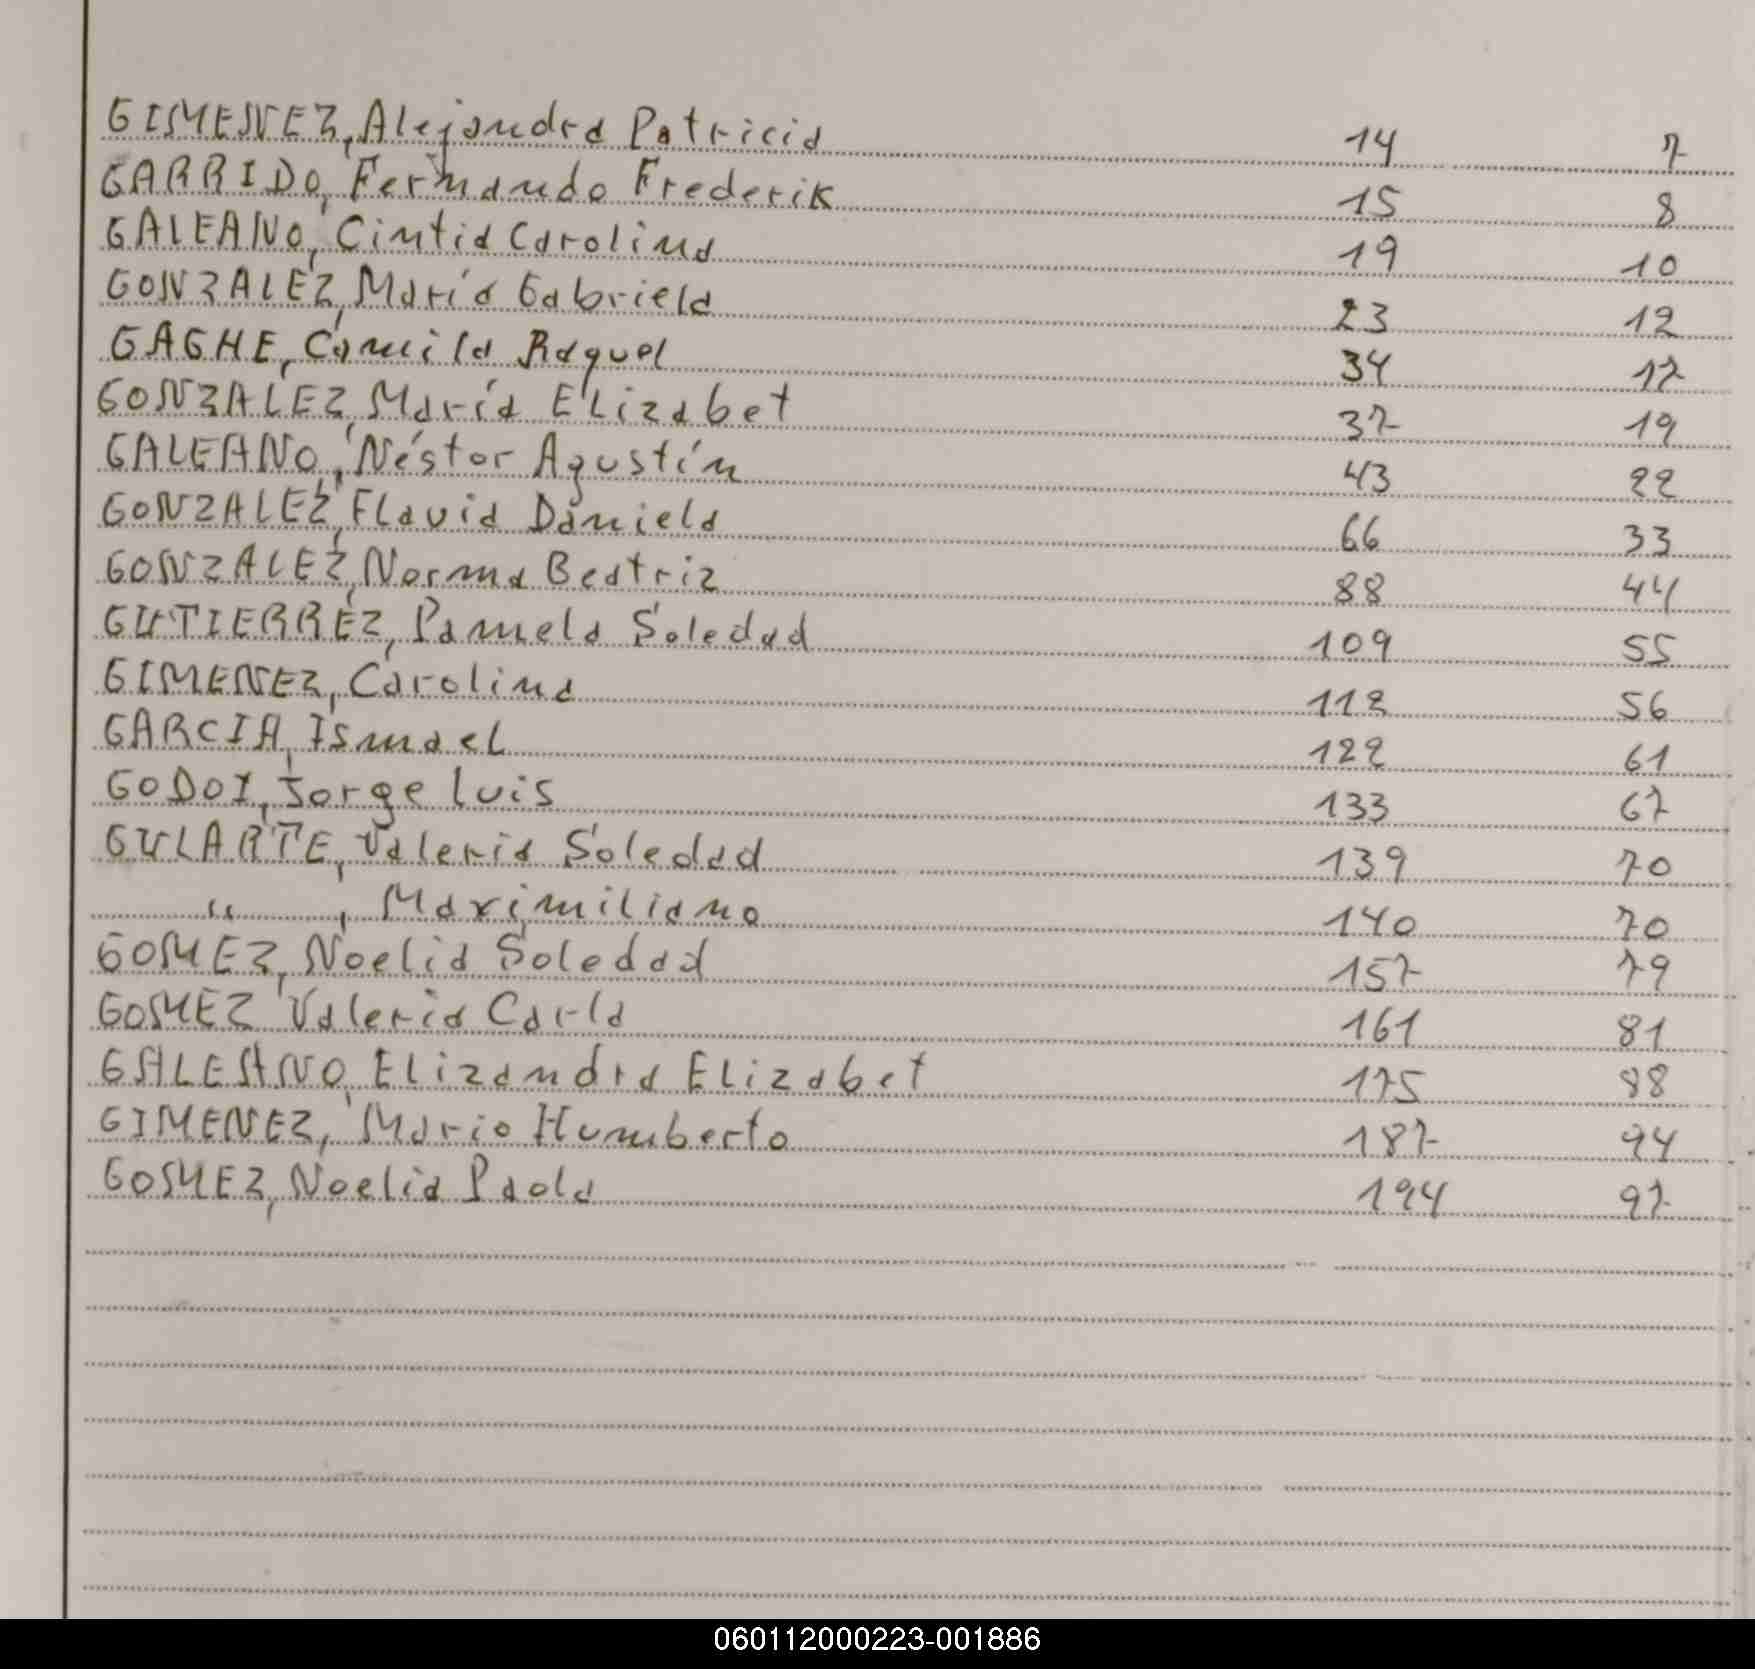 GIMENEZ, Alejandra Patricia 14 7
GARRIDO, Fernando Frederik 15 8
GALEANO, Cintia Carolina 19 10
GONZALEZ, María Gabriela 23 12
GAGHE, Camila Raquel 34 17
GONZALEZ, María Elizabet 37 19
GALEANO, Néstor Agustín 43 22
GONZALEZ, Flavia Daniela 66 33
GONZALEZ, Norma Beatriz 88 44
GUTIERREZ, Pamela Soledad 109 55
GIMENEZ, Carolina 112 56
GARCIA, Ismael 122 61
GODOY, Jorge Luis 133 67
GULARTE, Valeria Soledad 139 70
" , Maximiliano 140 70
GOMEZ, Noelia Soledad 157 79
GOMEZ Valeria Carla 161 81
GALEANO, Elizandra Elizabet 175 88
GIMENEZ, Mario Humberto 187 94
GOMEZ, Noelia Paola 194 97
060112000223-001886